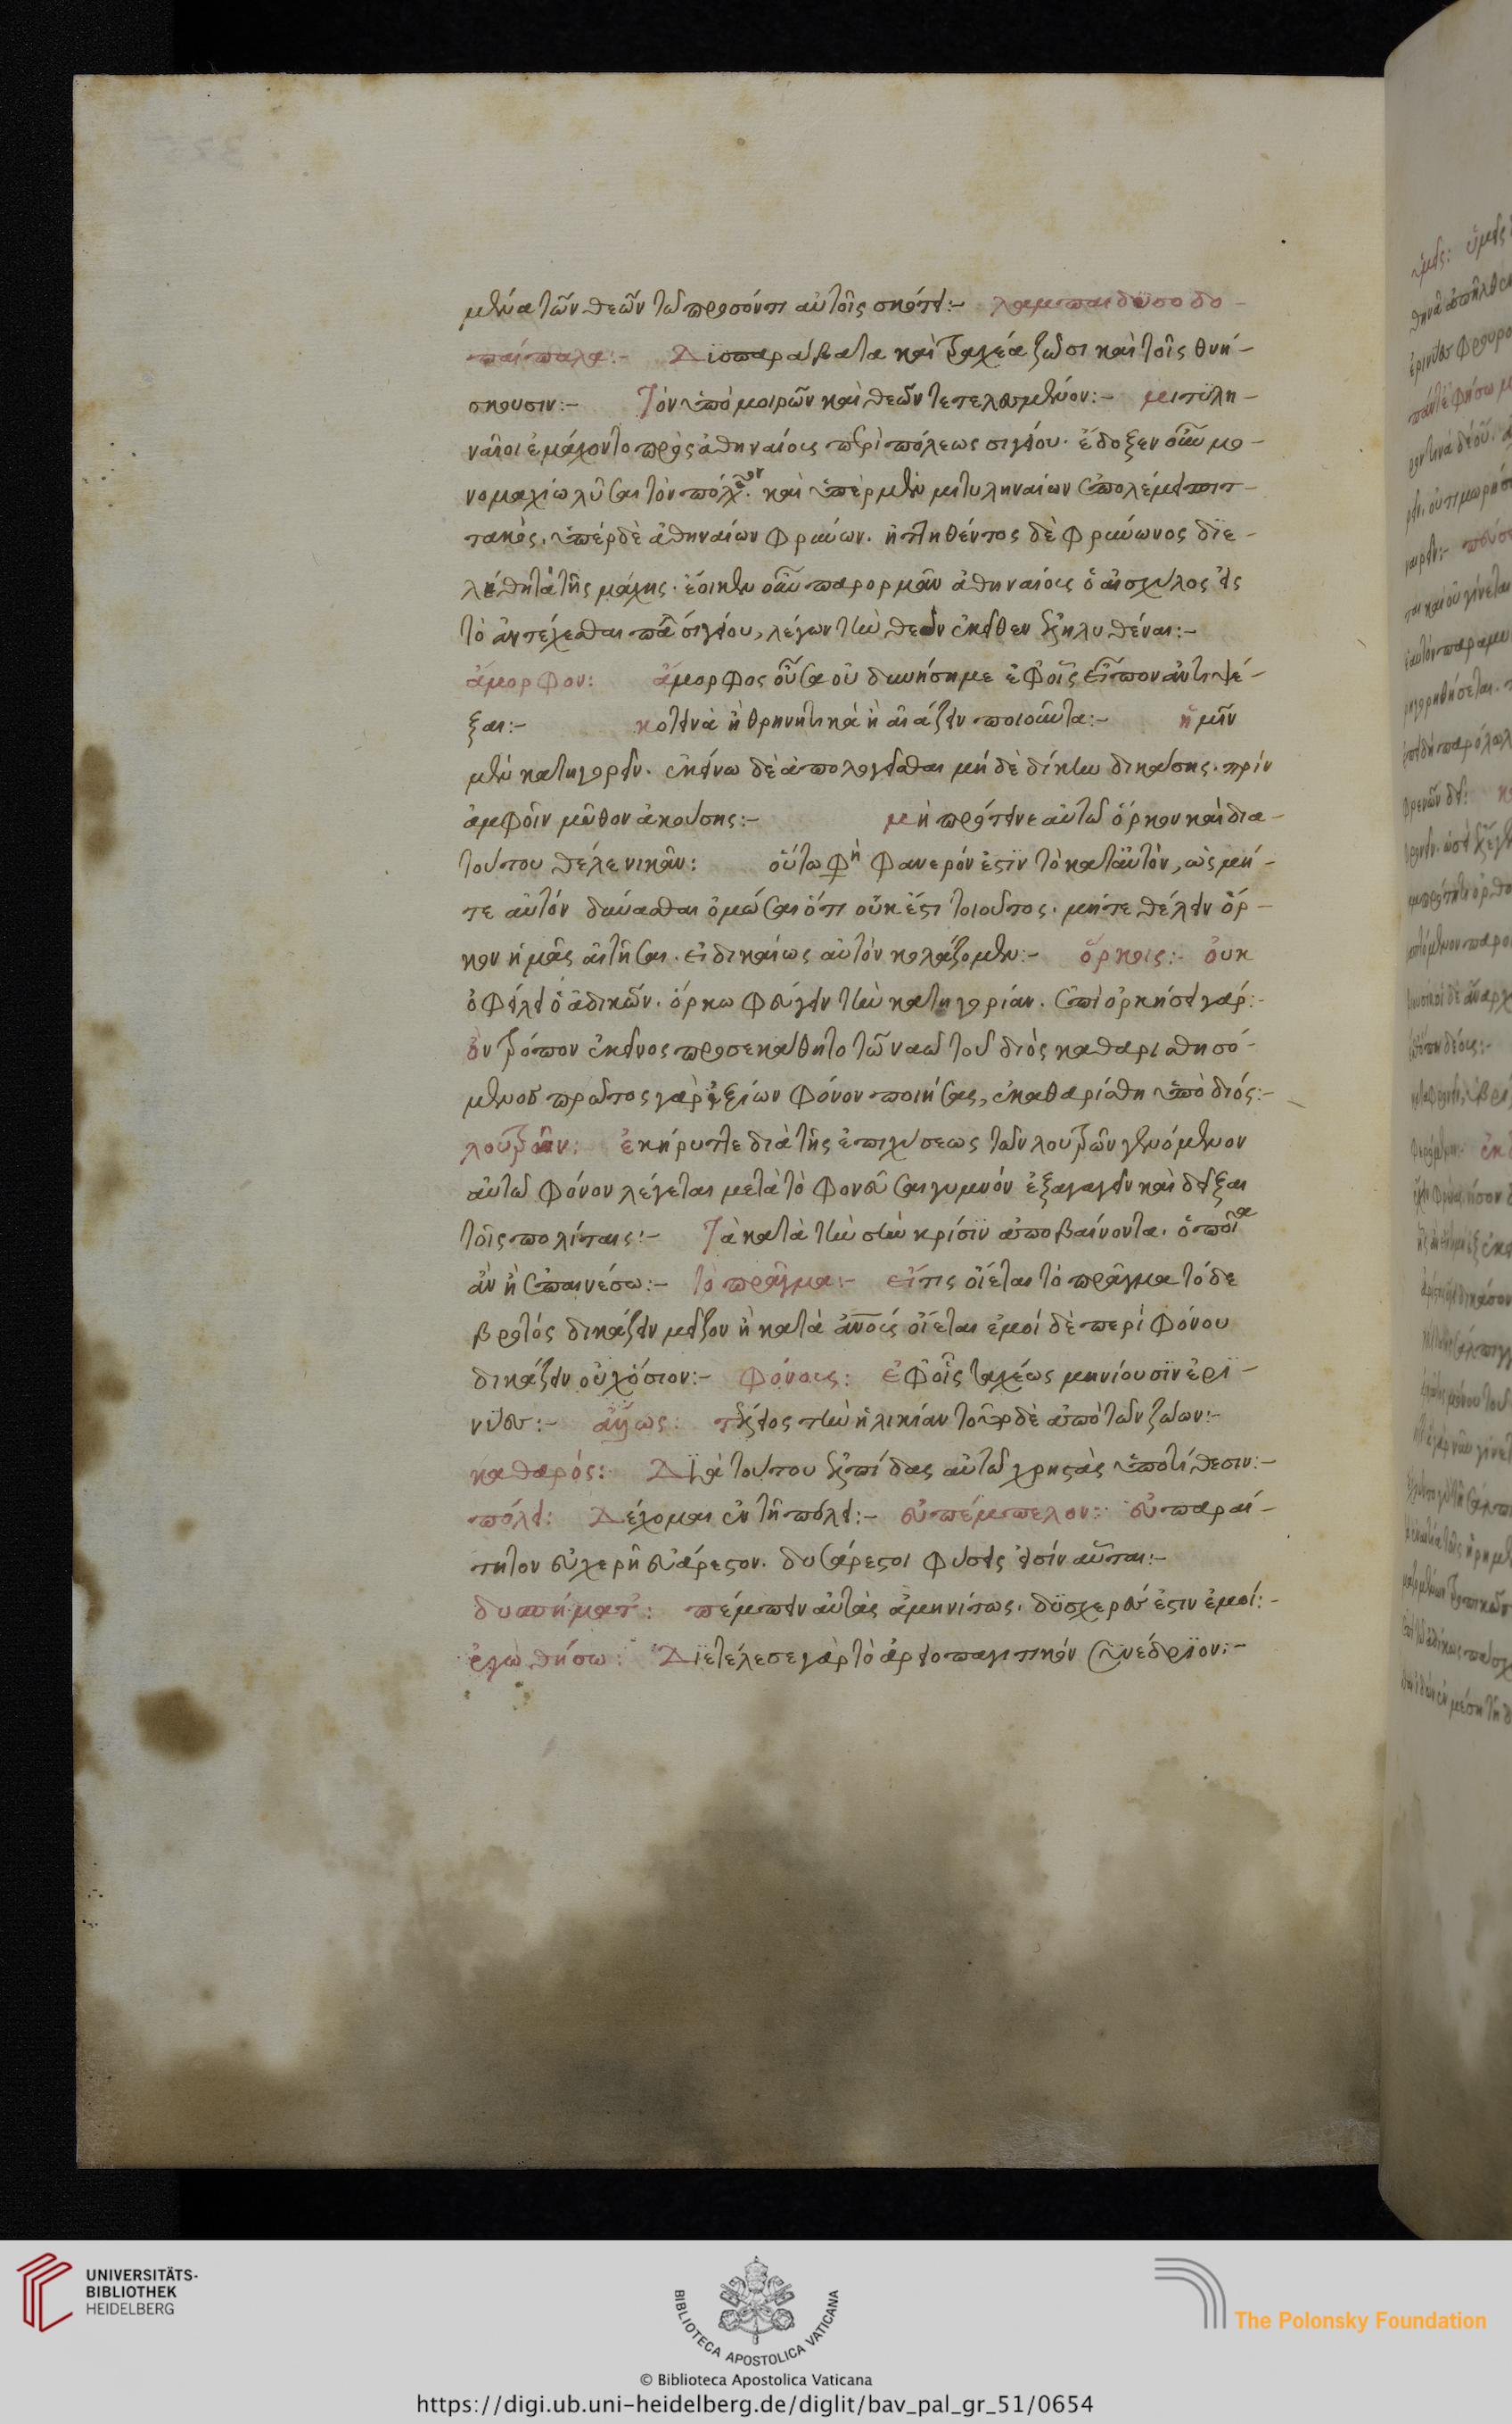 μένα τῶν θεῶν τῶ προσόντι αὐτοῖς σκότει:– λαμπαιδυσοδο–
παίπαλα:– Δϊσπαραίβατα καὶ τραχέα ζῶσι καὶ τοῖς θνή–
σκουσιν:– Τὸν ὑπὸ μοιρῶν καὶ θεῶν τετελεσμένον:– μιτυλη–
ναῖοι ἐμάχοντο πρὸς ἀθηναίους περὶ πόλεως σιγείου. ἔδοξεν οὖν μο–
νομαχίω λῦσαι τὸν πόλεμον. καὶ ὑπὲρ μὲν μιτυληναίων ἐπολέμει πιτ–
τακός. ὑπὲρ δὲ ἀθηναίων φρύνων. ἡττηθέντος δὲ φρύνωνος διε–
λύθη τὰ τῆς μάχης. ἔοικεν οὖν παρορμᾶν ἀθηναίους ὁ αἰσχύλος εἰς
τὸ ἀντέχεσθαι τοῦ σιγείου, λέγων τὴν θεὸν ἐκεῖθεν ἐξηλυθέναι:–
ἄμορφον: ἄμορφος οὖσα οὐ δυνήσῃ με ἐφ' οἷς εἶπον ἀντιψέ–
ξαι:– κοτεινὰ ἢ θρηνητικὰ ἢ αἰάζειν ποιοῦντα:– ἡμῖν
μὲν κατηγορεῖν. ἐκείνω δὲ ἀπολογεῖσθαι μὴ δὲ δίκην δικάσῃς. πρὶν
ἀμφοῖν μῦθον ἀκούσῃς:– μὴ πρότεινε αὐτῶ ὅρκον καὶ δια–
τούτου θέλε νικᾶν: οὕτω φη φανερόν ἐστϊν τὸ κατ' αὐτόν, ὡς μή–
τε αὐτόν δύνασθαι ὀμόσαι ὅτι οὐκ ἔστι τοιοῦτος. μήτε θέλειν ὅρ–
κον ἡμᾶς αἰτῆσαι. εἰ δικαίως αὐτόν κολάζομεν:– ὅρκοις:– οὐκ
ὀφείλει ὁ ἀδικῶν. ὅρκω φεύγειν τὴν κατηγορίαν. ἐπιορκήσει γάρ:–
ὃν τρόπον ἐκεῖνος προσεκάθητο τῶ ναῶ τοῦ διὸς καθαρισθησό–
μενος πρῶτος γὰρ ἰξίων φόνον ποιήσας, ἐκαθαρίσθη ὑπὸ διός:–
λουτρῶν: ἐκήρυττε διὰ τῆς ἐπιχύσεως τῶν λουτρῶν γενόμενον
αὐτῶ φόνον λέγεται μετὰ τὸ φονεῦσαι γυμνόν ἐξαγαγεῖν καὶ δεῖξαι
τοῖς πολίταις:– Τὰ κατὰ τὴν σὴν κρίσϊν ἀποβαίνοντα. ὁποῖα
ἂν ἦ ἐπαινέσω:– τὸ πρᾶγμα:– εἴ τις οἴεται τὸ πρᾶγμα τόδε
βροτός δικάζειν μεῖζον ἢ κατὰ ἀν̅ο̅υς οἴεται ἐμοί δὲ περὶ φόνου
δικάζειν οὐχ ὅσιον:– φόνους: ἐφ' οἷς ταχέως μηνίουσϊν ἐρι–
νύες:– ἄλλως: τέλειος τὴν ἡλικίαν τοῦτο δὲ ἀπὸ τῶν ζώων:–
καθαρός: Δϊὰ τούτου ἐλπίδας αὐτῶ χρηστὰς ὑποτίθεσιν:–
πόλει: Δέχομαι ἐν τῆ πόλει:– εὐπέμπελον: εὐπαραί–
τητον εὐχερῆ εὐάρεστον. δυσάρεστοι φύσεις εἰσὶν αὗται:–
δυσπήματ': πέμπειν αὐτὰς ἀμηνίτως. δϋσχερές ἐστιν ἐμοί:–
ἐγὼ θήσω: Δϊετέλεσε γὰρ τὸ ἀρειοπαγιτικόν συνέδρϊον:–
UNIVERSITÄTS-
BIBLIOTHEK
HEIDELBERG
BIBLIOTECA APOSTOLICA VATICANA
The Polonsky Foundation
© Biblioteca Apostolica Vaticana
https://digi.ub.uni-heidelberg.de/diglit/bav_pal_gr_51/0654